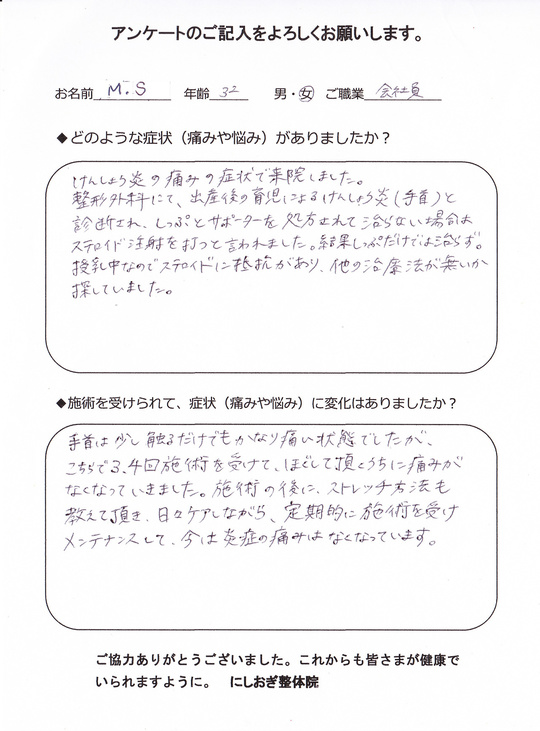 アンケートのご記入をよろしくお願いします。
お名前 M.S 年齢 32 男・女 ご職業 会社員
◆どのような症状（痛みや悩み）がありましたか？
けんしょう炎の痛みの症状で来院しました。
整形外科にて、出産後の育児によるけんしょう炎(手首)と
診断され、しっぷとサポーターを処方されて治らない場合は
ステロイド注射を打つと言われました。結果しっぷだけでは治らず。
授乳中なのでステロイドに抵抗があり、他の治療法が無いか
探していました。
◆施術を受けられて、症状（痛みや悩み）に変化はありましたか？
手首は少し触るだけでもかなり痛い状態でしたが、
こちらで3、4回施術を受けて、ほぐして頂くうちに痛みが
なくなっていきました。施術の後に、ストレッチ方法も
教えて頂き、日々ケアしながら、定期的に施術を受け
メンテナンスして、今は炎症の痛みはなくなっています。
ご協力ありがとうございました。これからも皆さまが健康で
いられますように。 にしおぎ整体院